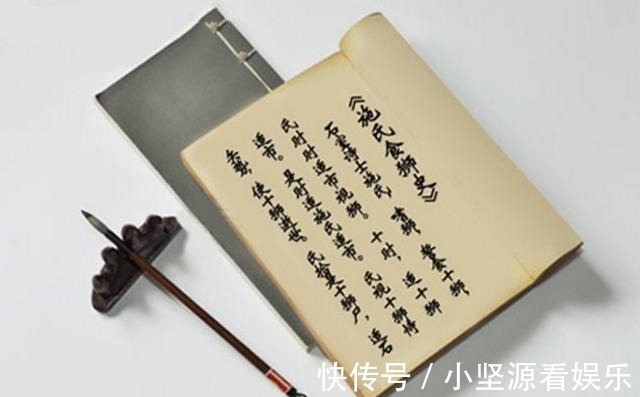 《施氏食狮史》
石室诗士施氏 嗜狮 誓食十狮,
氏时时适市视狮。 十时, 适十狮
适市。 是时适施氏适市。 氏视十狮恃
矢势, 使十狮逝世。 氏拾是十狮尸, 适石
快传号 / 小坚源看娱乐